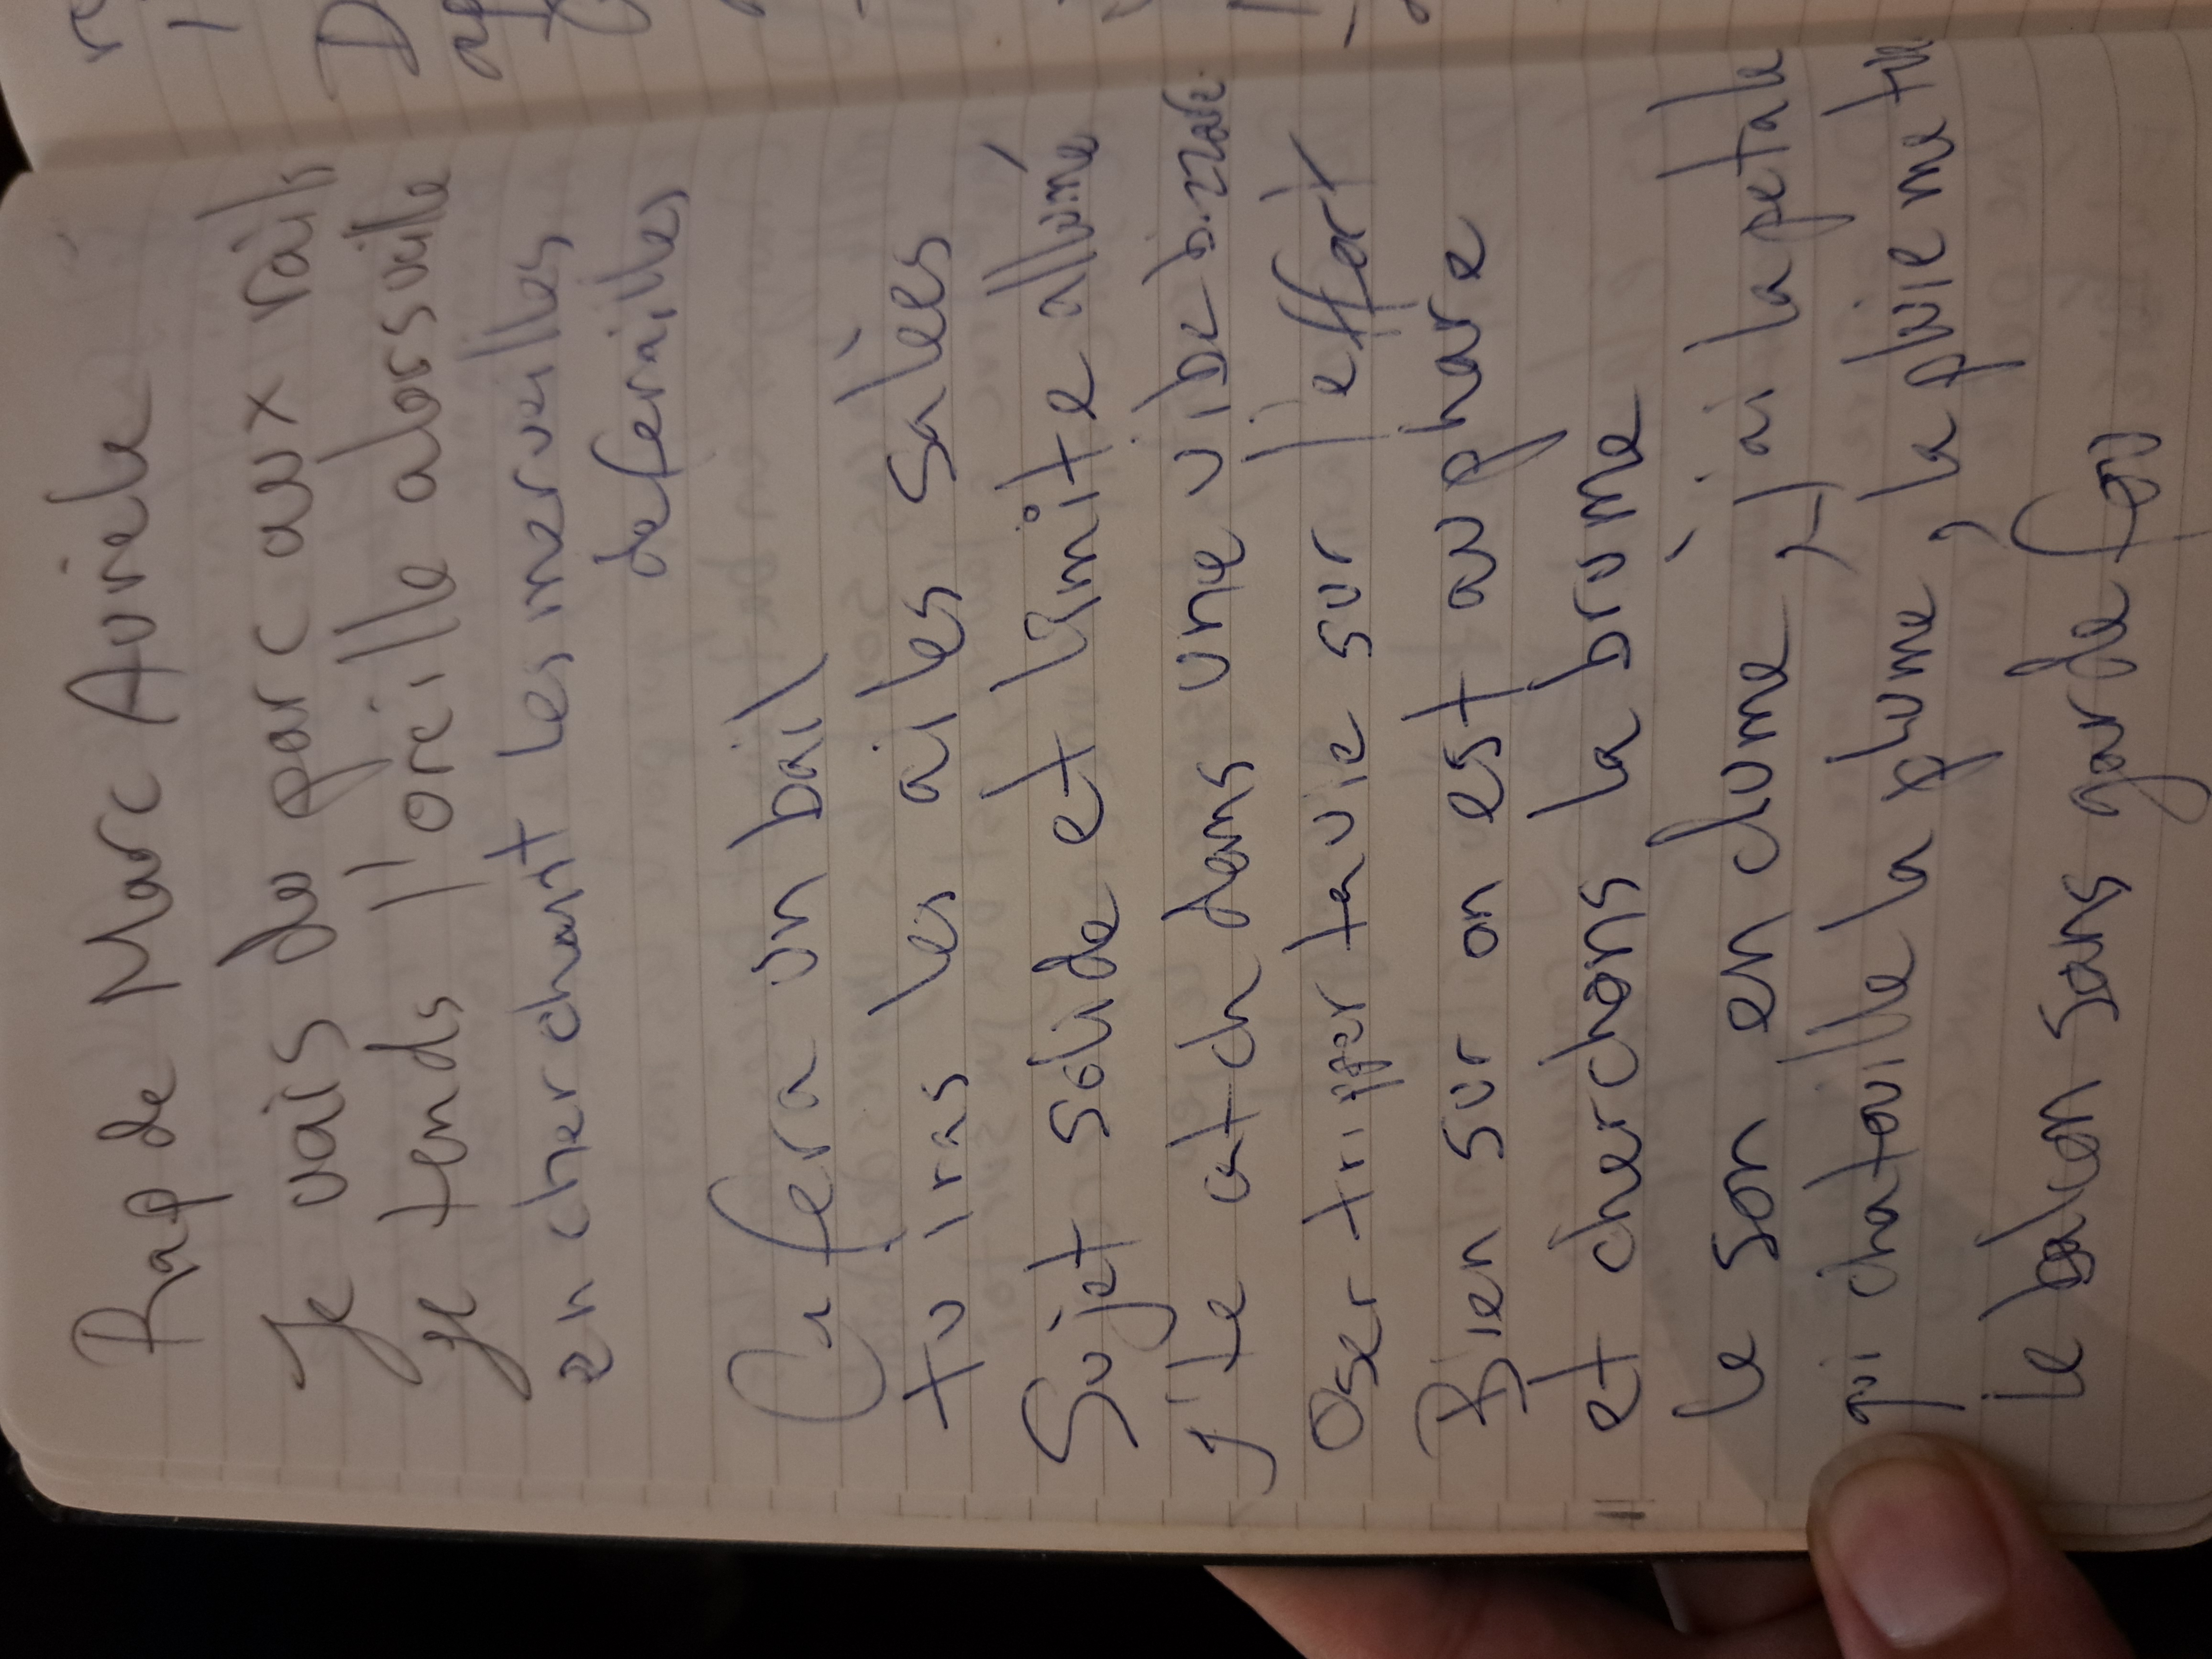 Rap de Marc Aurièle
Je vais du parc aux rails
je tends l'oreille alors veille
en cherchant les merveilles
de ferailles
Ca fera un bail
tu iras les ailes salées
Sujet solide et limite allumé
j'te catch dans une vibe bizzare
Oser tripper ta vie sur l'effort
Bien sur on est au phare
et cherchons la brume
le son en clume, j'ai la petale
qui chatouille la plume, la pluie me
le balcon sans garde fou